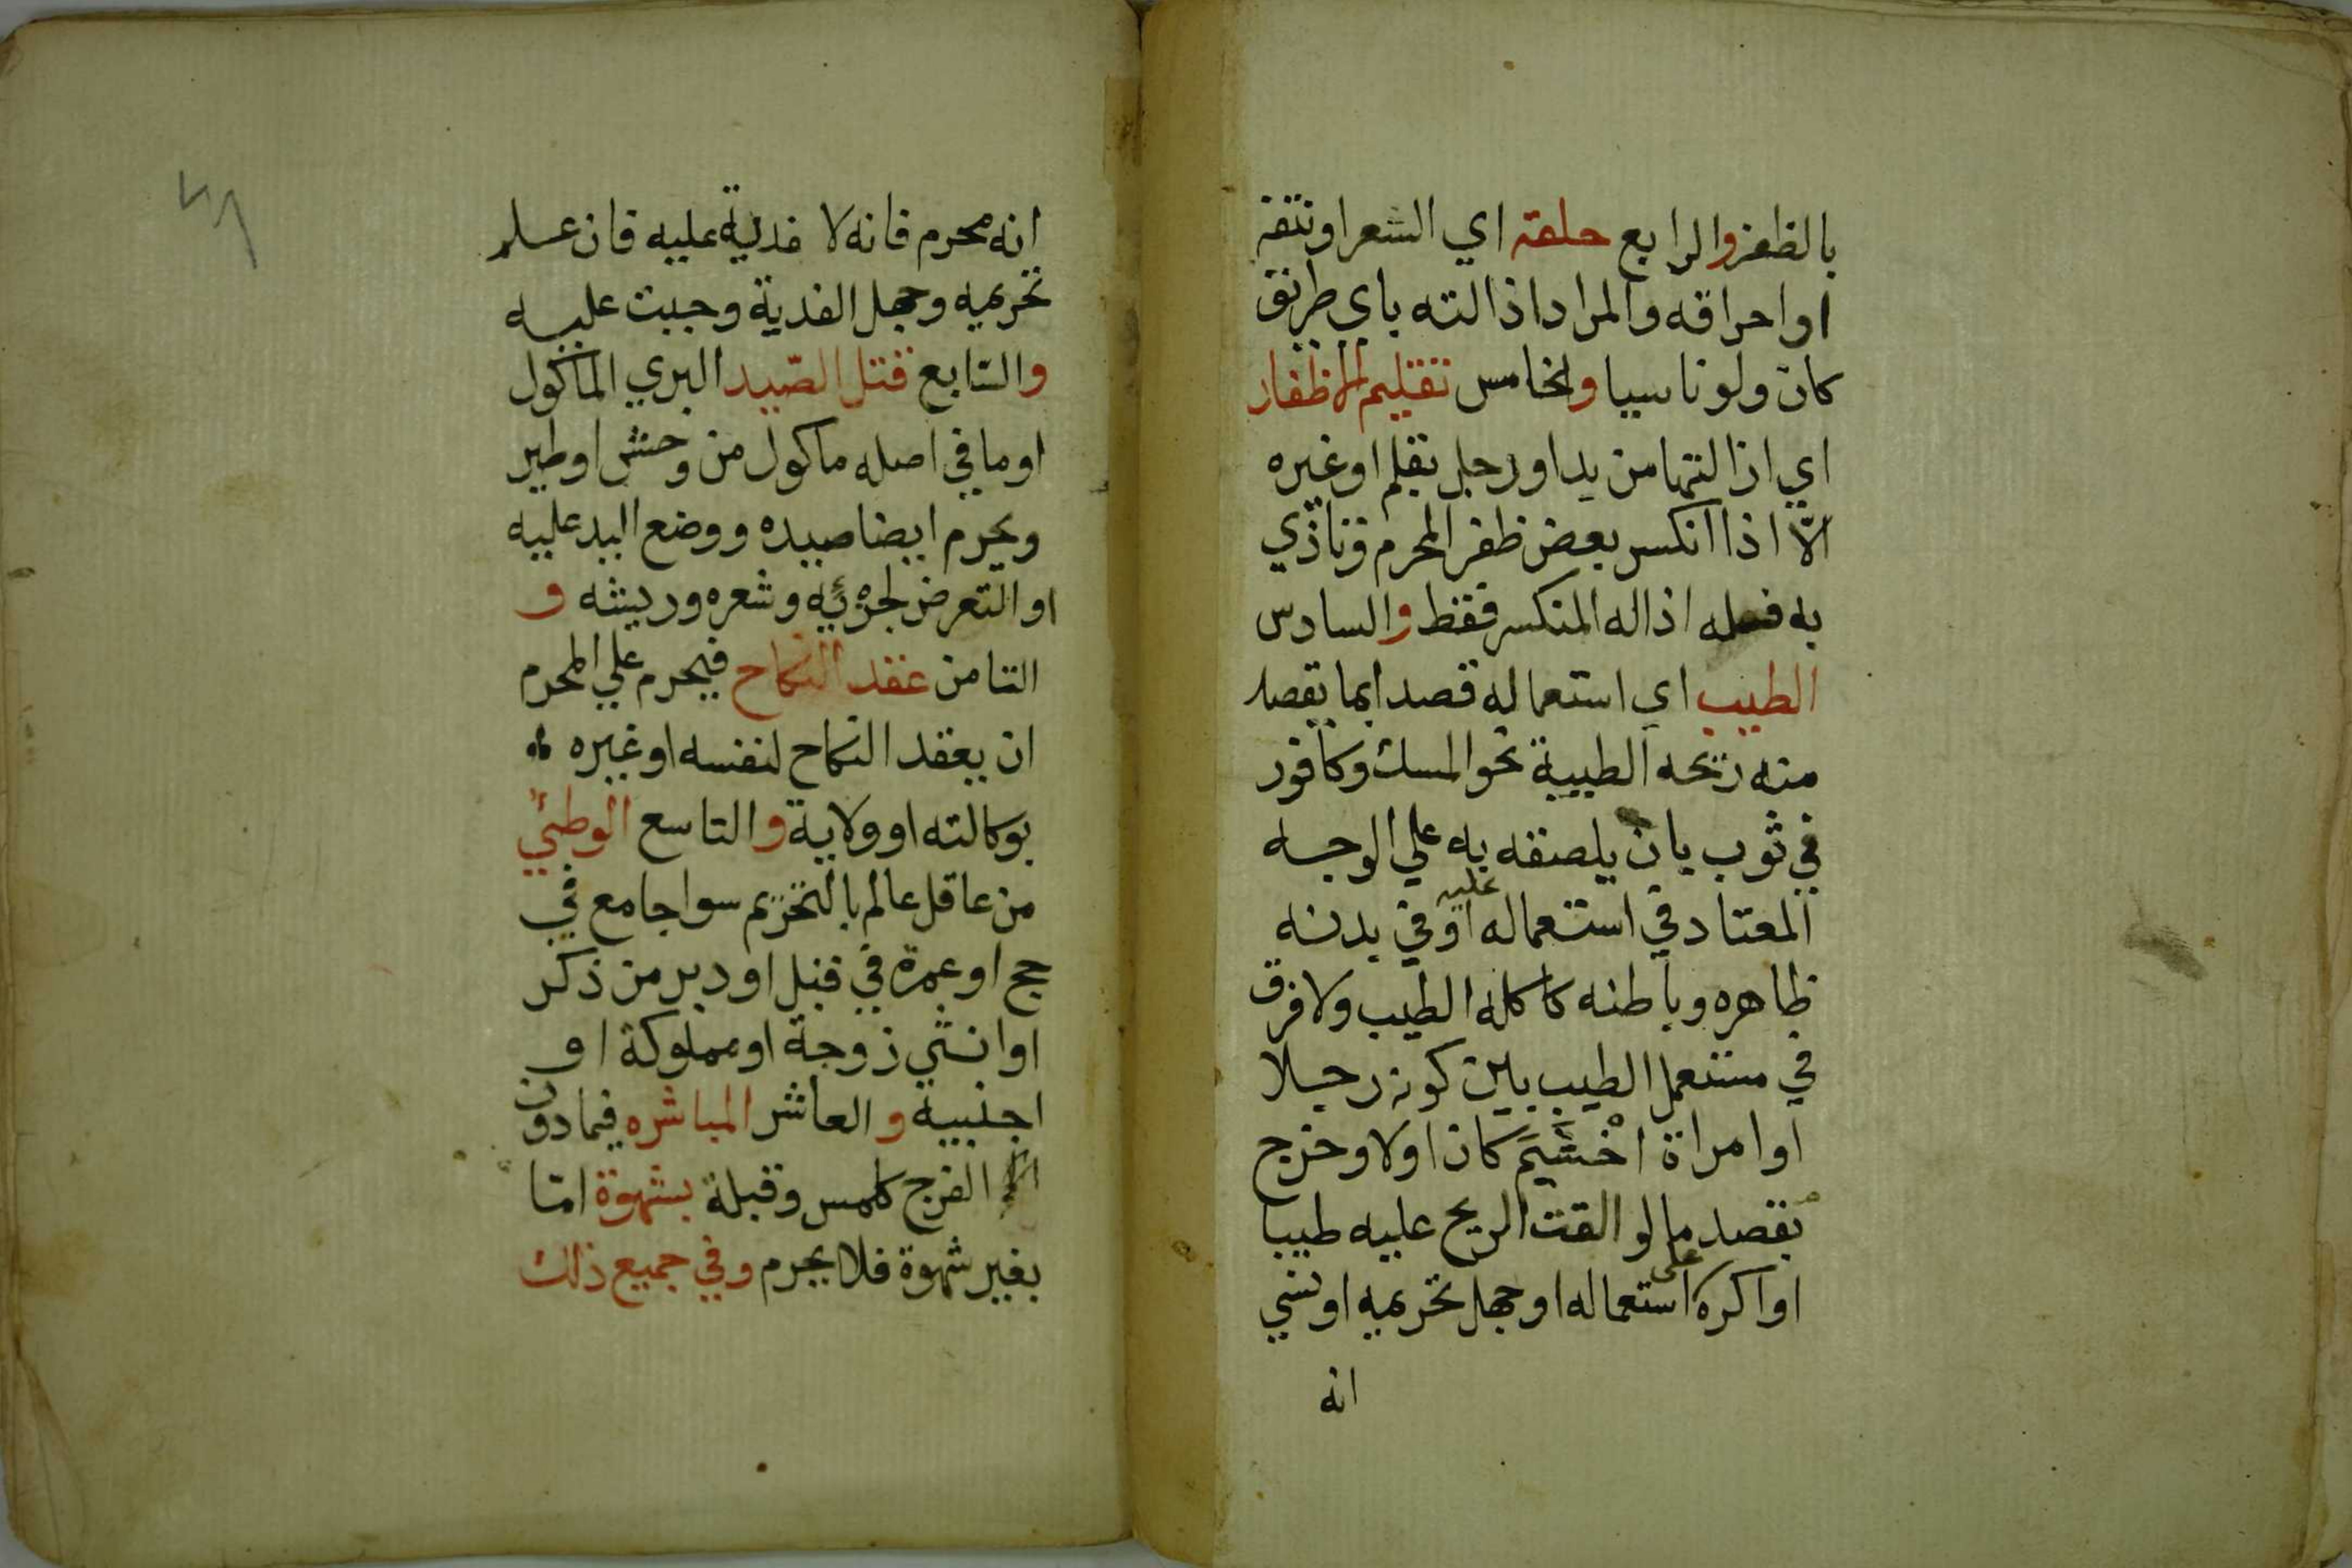 بالظفر والرابع حلقه اي الشعر او نتفه
او احراقه والمراد اذالته باي طريق
كان ولو ناسيا والخامس تقليم الاظفار
اي اذالتها من يد او رجل بقلم او غيره
الا اذا انكسر بعض ظفر المحرم وتاذي
به فله اذاله المنكسر فقط والسادس
الطيب اي استعماله قصدا بما يقصد
منه ريحه الطيبة نحو المسك وكافور
في ثوب بان يلصقه به علي الوجه
المعتاد في استعماله عليه او في بدنه
ظاهره وباطنه كاكله الطيب ولا فرق
في مستعمل الطيب بين كونه رجلا
او امراة اخشم كان اولا وخرج
بقصد ما لو القت الريح عليه طيبا
او اكره على استعماله او جهل تحريمه او نسي
انه
٤٨
انه محرم فانه لا فدية عليه فان علم
تحريمه وجهل الفدية وجبت عليه
والسابع قتل الصيد البري الماكول
او ما في اصله ماكول من وحش او طير
ويحرم ايضا صيده ووضع اليد عليه
او التعرض لجزئه وشعره وريشه و
الثامن عقد النكاح فيحرم علي المحرم
ان يعقد النكاح لنفسه او غيره
بوكالته او ولاية والتاسع الوطئ
من عاقل عالم بالتحريم سوا جامع في
حج او عمرة في قبل او دبر من ذكر
او انثي زوجة او مملوكة او
اجنبية والعاشر المباشره فيما دون
الفرج كلمس وقبلة بشهوة امّا
بغير شهوة فلا يحرم وفي جميع ذلك